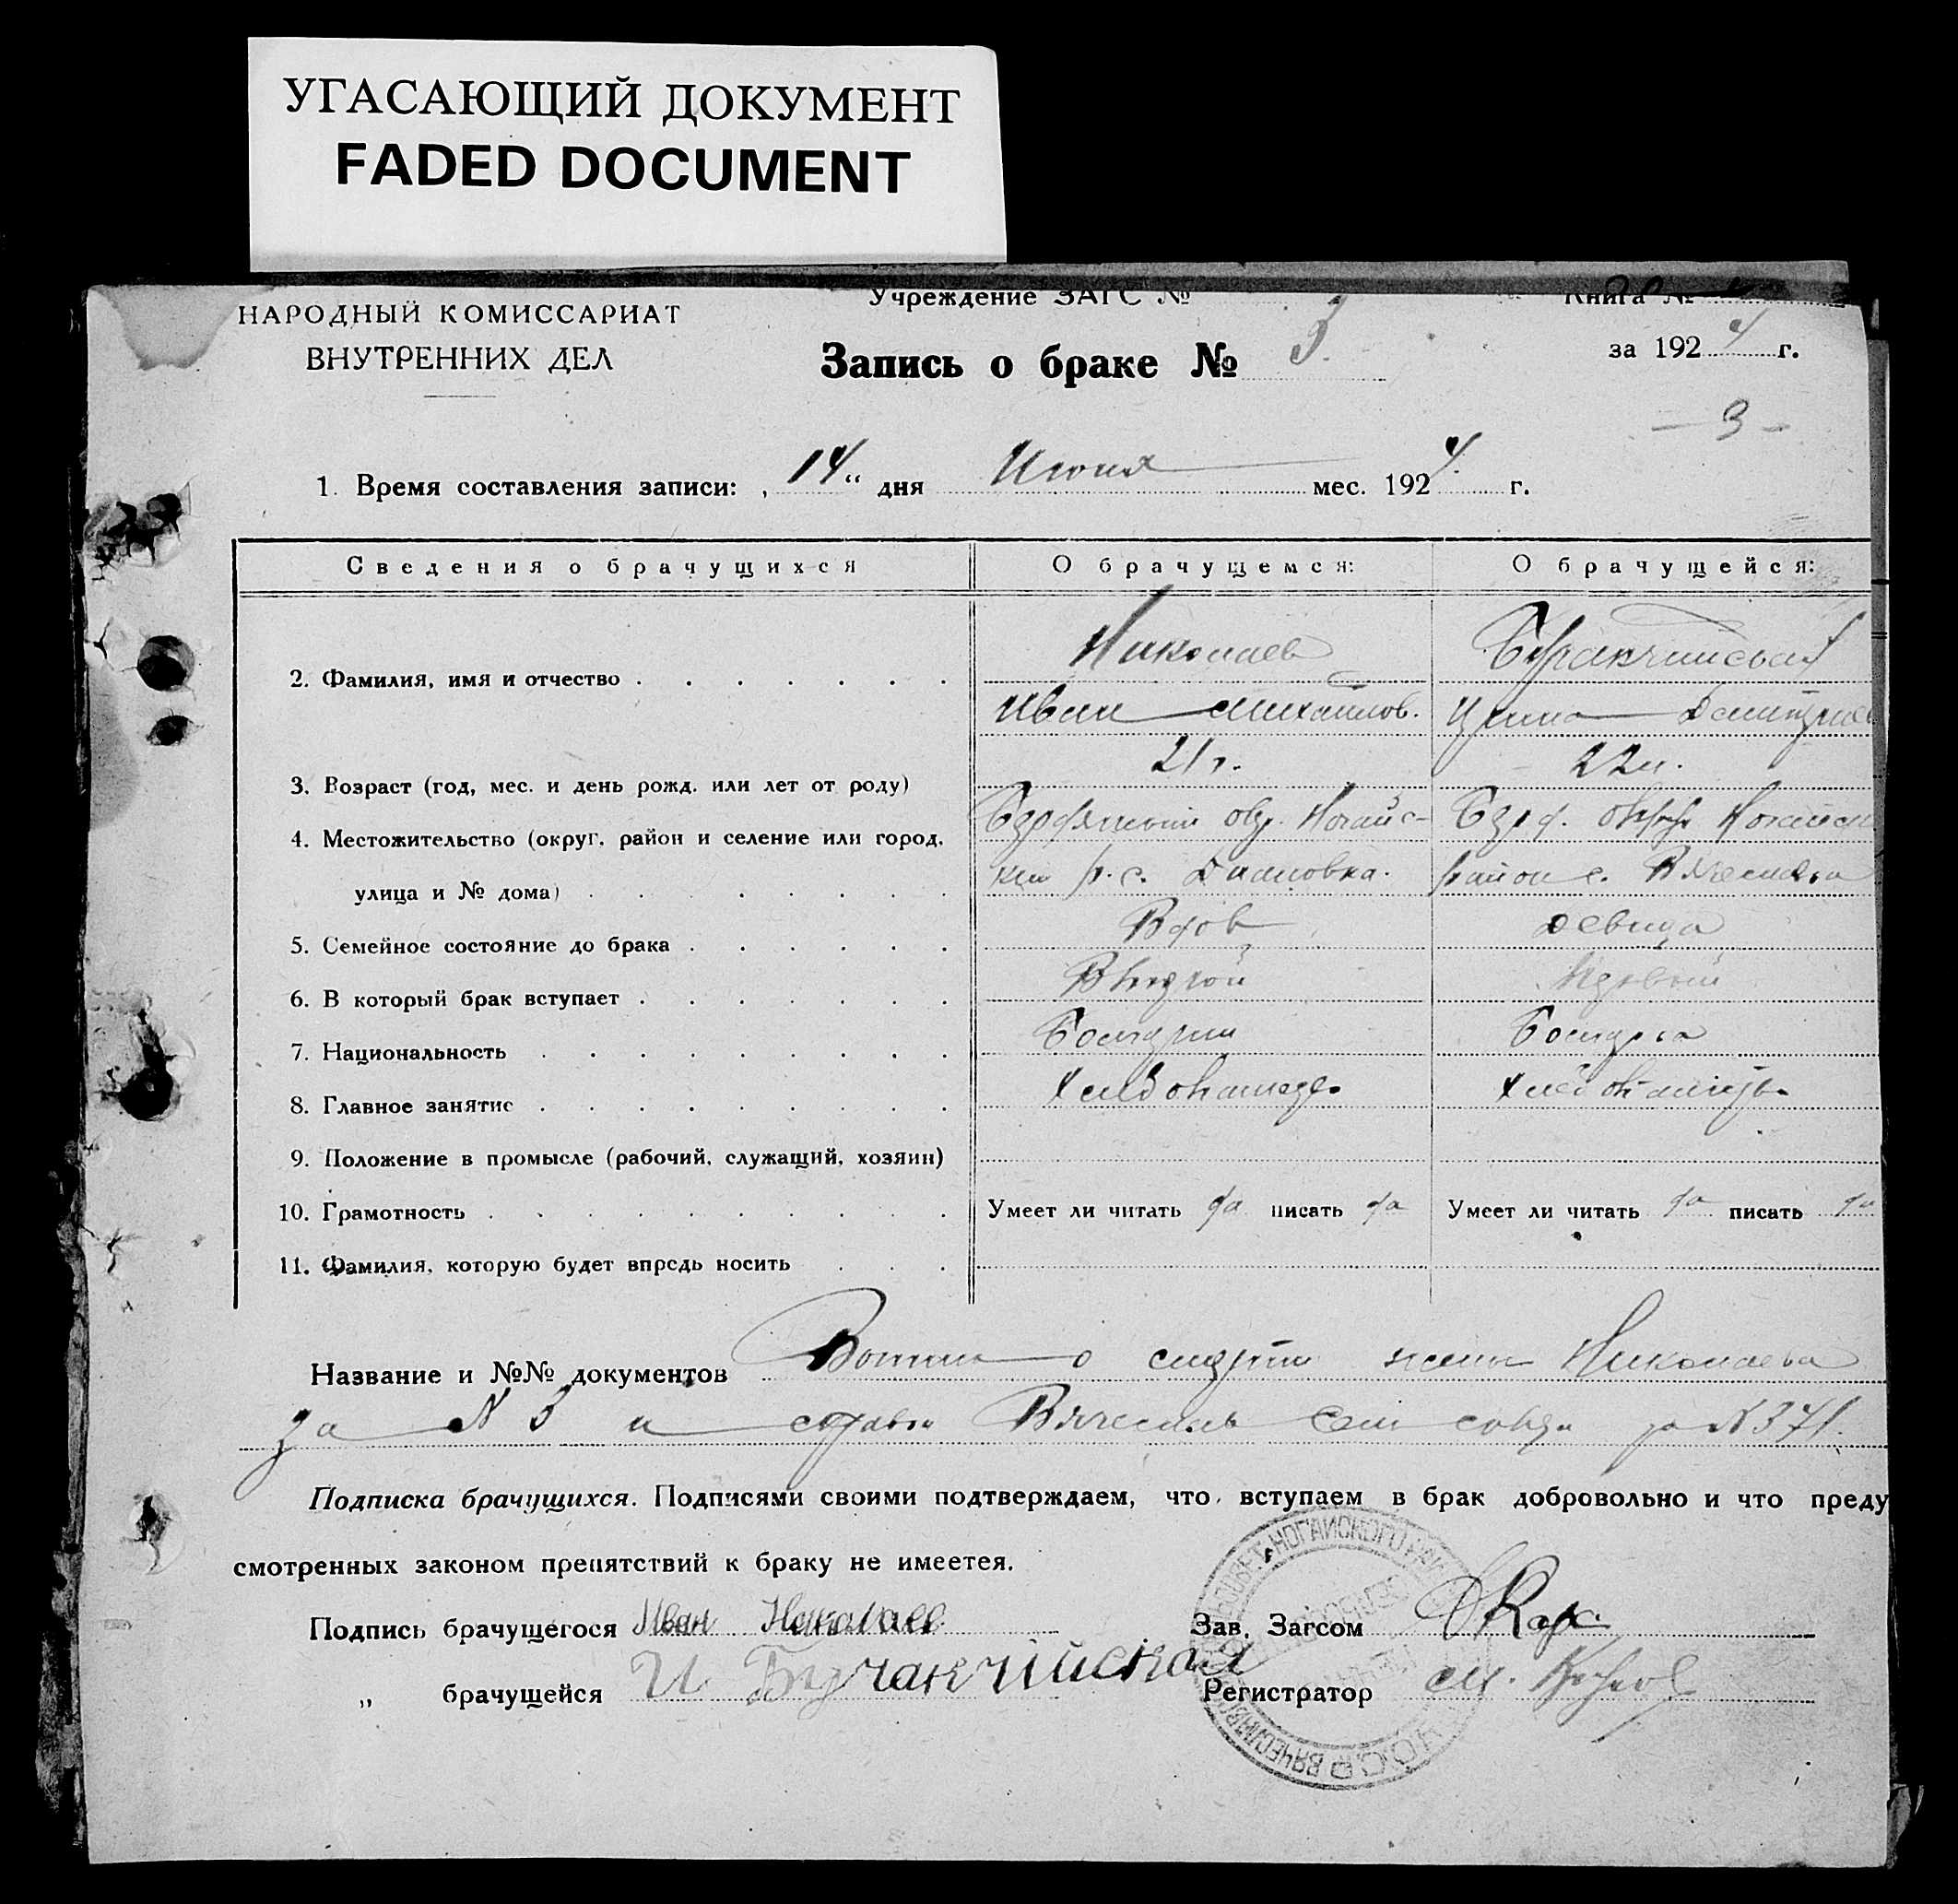 УГАСАЮЩИЙ ДОКУМЕНТ
FADED DOCUMENT
НАРОДНЫЙ КОМИССАРИАТ
ВНУТРЕННИХ ДЕЛ
Учреждение ЗАГС №
Книга №
Запись о браке № 3.
за 1924 г.
- 3 -
1. Время составления записи: „14" дня Июня мес. 1924. г.
Сведения о брачущихся
О брачущемся:
О брачущейся:
2. Фамилия, имя и отчество
Николаев
Иван Михайлов.
Ирина Дмитриев
3. Возраст (год, мес. и день рожд. или лет от роду)
21 г.
22 л.
4. Местожительство (округ, район и селение или город,
улица и № дома)
Бердянский окр. Ногайс-
кий р. с. Диановка.
Берд. округ Ногайск
район с.
5. Семейное состояние до брака
Вдов
девица
6. В который брак вступает
Второй
Первый
7. Национальность
8. Главное занятие
9. Положение в промысле (рабочий, служащий, хозяин)
10. Грамотность
Умеет ли читать да писать да
Умеет ли читать да писать да
11. Фамилия, которую будет впредь носить
Название и №№ документов о смерти жены Николаева
за № 3 и справки сель совета за № 371.
Подписка брачущихся. Подписями своими подтверждаем, что вступаем в брак добровольно и что преду
смотренных законом препятствий к браку не имеется.
Подпись брачущегося Иван Николаев
Зав. Загсом
„ брачущейся И Бучакчийская
Регистратор
НОГАЙСКОГО
УССР